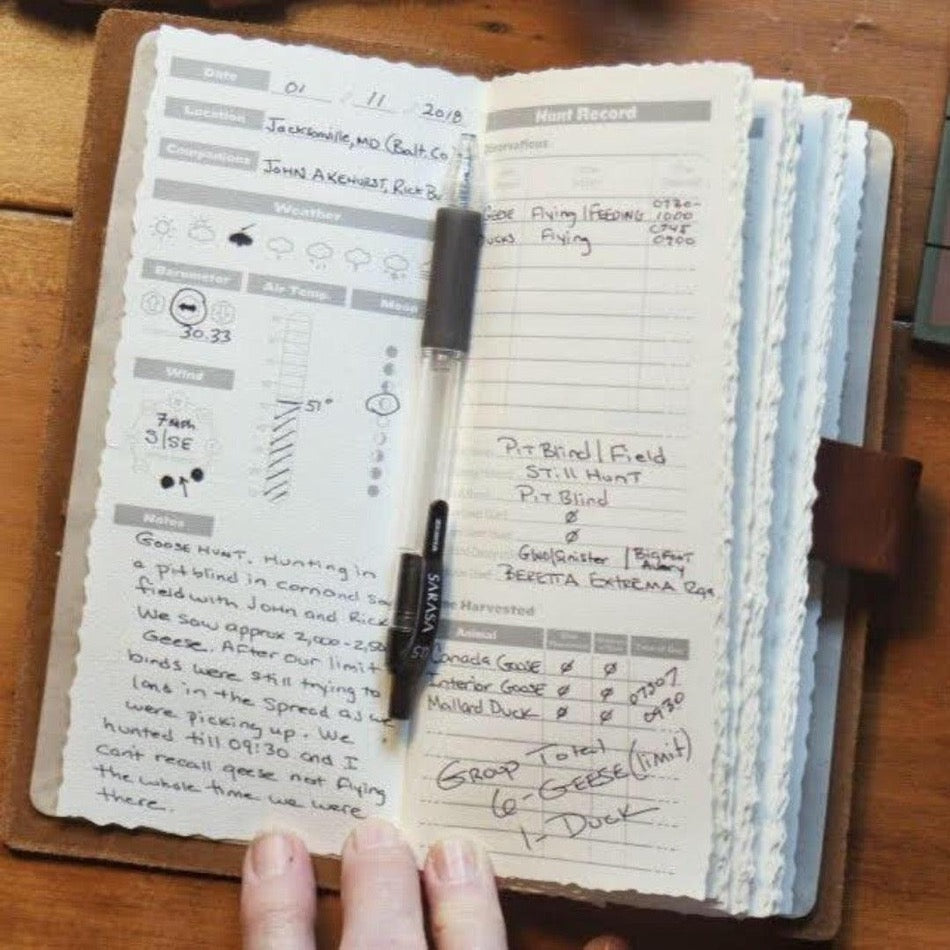 Date 01 / 11 / 2018
Location Jacksonville, MD (Balt. Co
Companions JOHN AKEHURST, RICK
Weather
Barometer
Air Temp.
Moon
30.33
Wind
51°
7mph
S/SE
Notes
GOOSE HUNT. Hunting in
a pit blind in corn and
field with John and Rick
We saw approx 2,000-2,50
Geese. After our limit
birds were still trying to
land in the spread as we
were picking up. We
hunted till 09:30 and I
cant recall geese not flying
the whole time we were
there.
SARASA
Hunt Record
Observations
GEESE Flying/FEEDING 0730-
1000
DUCKS Flying 0745
0900
Pit Blind / Field
Still Hunt
Pit Blind
Ø
Ø
GHG/Sinister / BIGFOOT
Avery
BERETTA EXTREMA
Harvested
Animal
Canada Goose Ø Ø
Interior Goose Ø Ø 0730?
Mallard Duck Ø Ø 0930
Total
GROUP
6-GEESE (limit)
1-DUCK